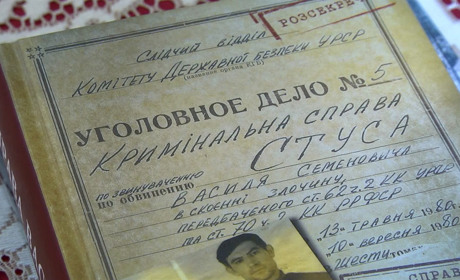 РОЗСЕКРЕ
Слідчий відділ
Комітету Державної Безпеки УРСР
(название органа КГБ)
УГОЛОВНОЕ ДЕЛО № 5
Кримінальна справа
СТУСА
по звинуваченню
по обвинению
Василя Семеновича
в скоєнні злочину,
передбаченого ст. 62 ч. 2 КК УРСР
та ст. 70 ч. 2 КК РРФСР
"13" травня 1980
"10" вересня 1980
Шести томах
СПРАВ